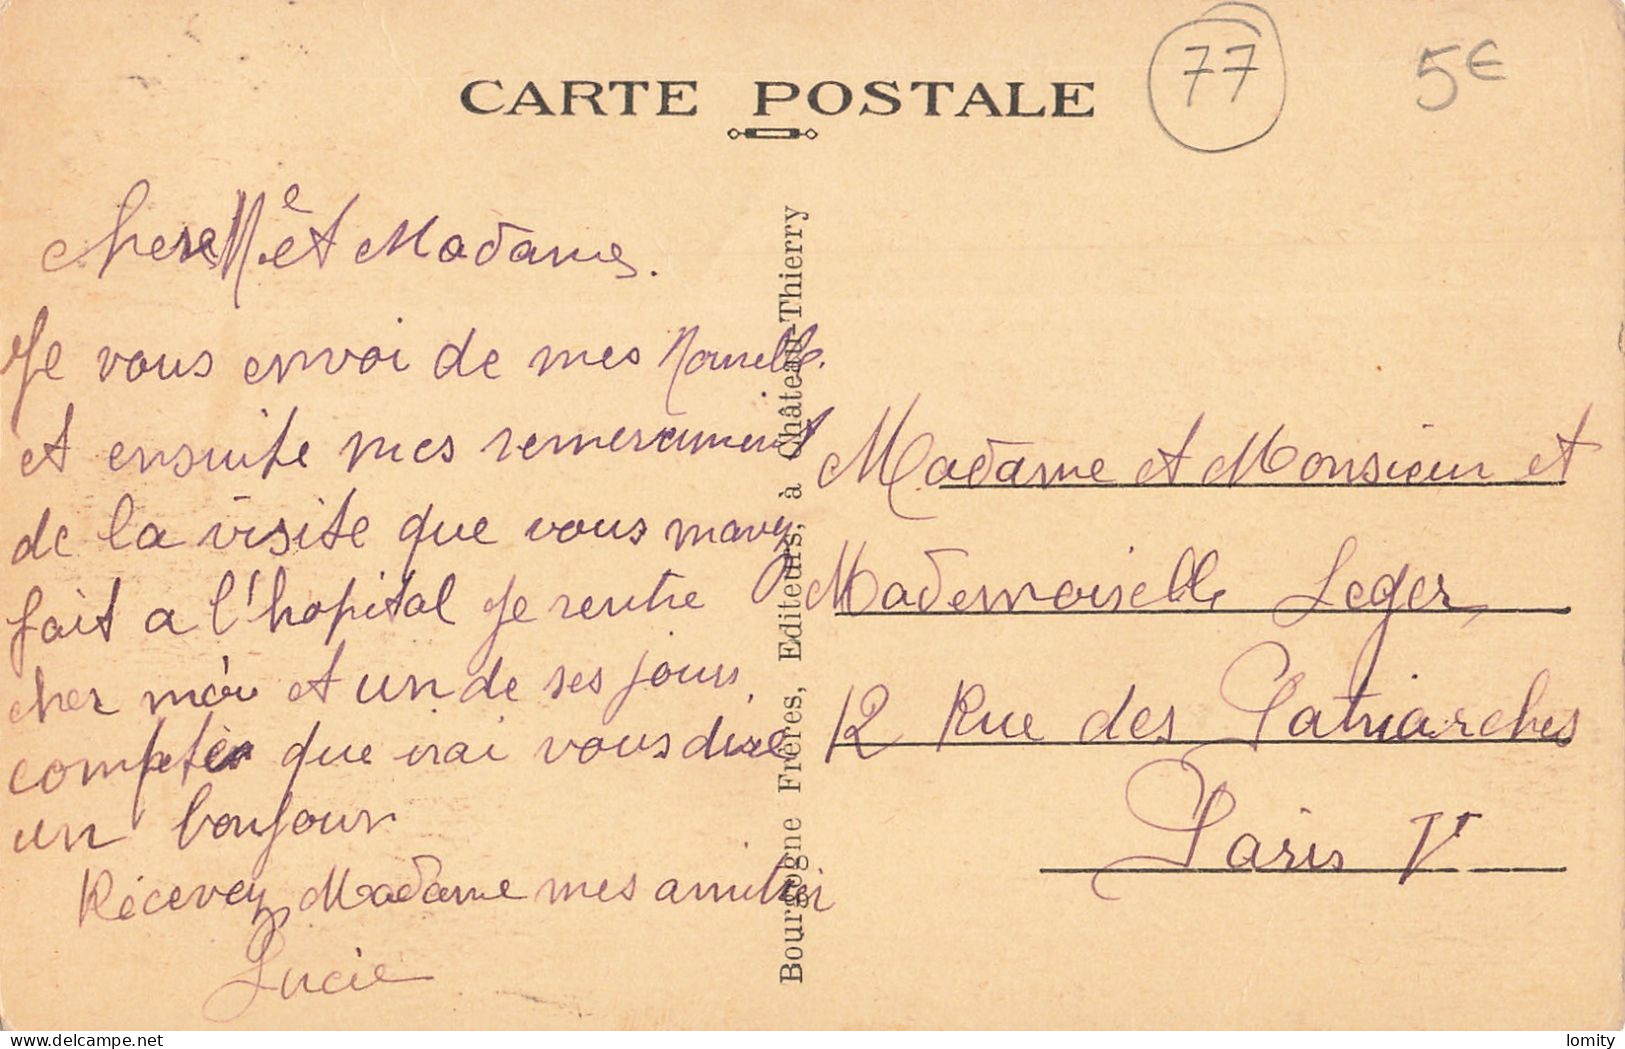 CARTE POSTALE
77
5€
Chere M.e et Madame.
Je vous envoi de mes Nouvelle.
et ensuite mes remerciment
de la visite que vous mavez
fait a l'hopital Je rentre
cher moi et un de ses jours
compter que irai vous dire
un bonjour
Récevez Madame mes amitiér
Lucie
Bourgogne Frères, Editeurs, à Château-Thierry
Madame et Monsieur et
Mademoiselle Leger
12 Rue des Patriarches
Paris V
delcampe.net
lomity